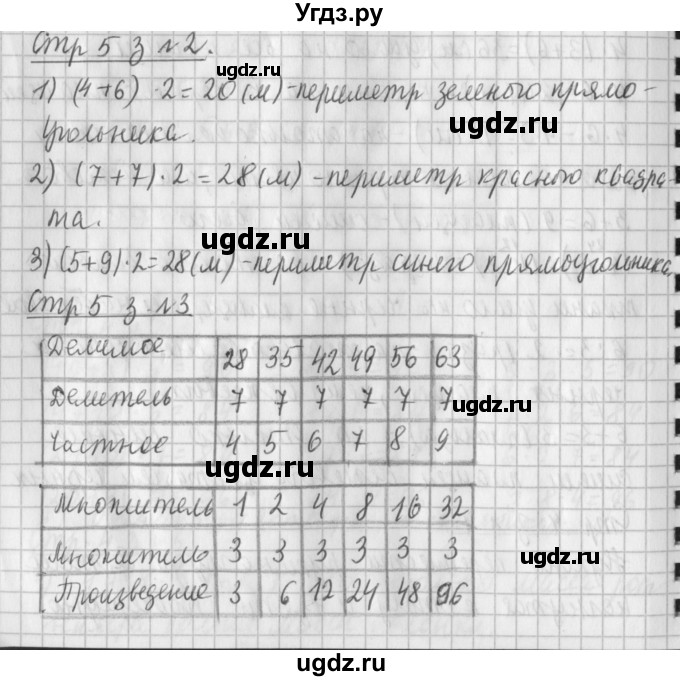 Угдз.ру
Стр 5 з №2.
1) (4+6) · 2 = 20 (м) - периметр зеленого прямо-
угольника.
2) (7+7) · 2 = 28 (м) - периметр красного квадра-
та.
3) (5+9) · 2 = 28 (м) - периметр синего прямоугольника.
Стр 5 з №3
Делимое 28 35 42 49 56 63
Делитель 7 7 7 7 7 7
Частное 4 5 6 7 8 9
Множитель 1 2 4 8 16 32
Множитель 3 3 3 3 3 3
Произведение 3 6 12 24 48 96
ugdz.ru
ugdz.ru
ugdz.ru
ugdz.ru
ugdz.ru
ugdz.ru
ugdz.ru
ugdz.ru
ugdz.ru